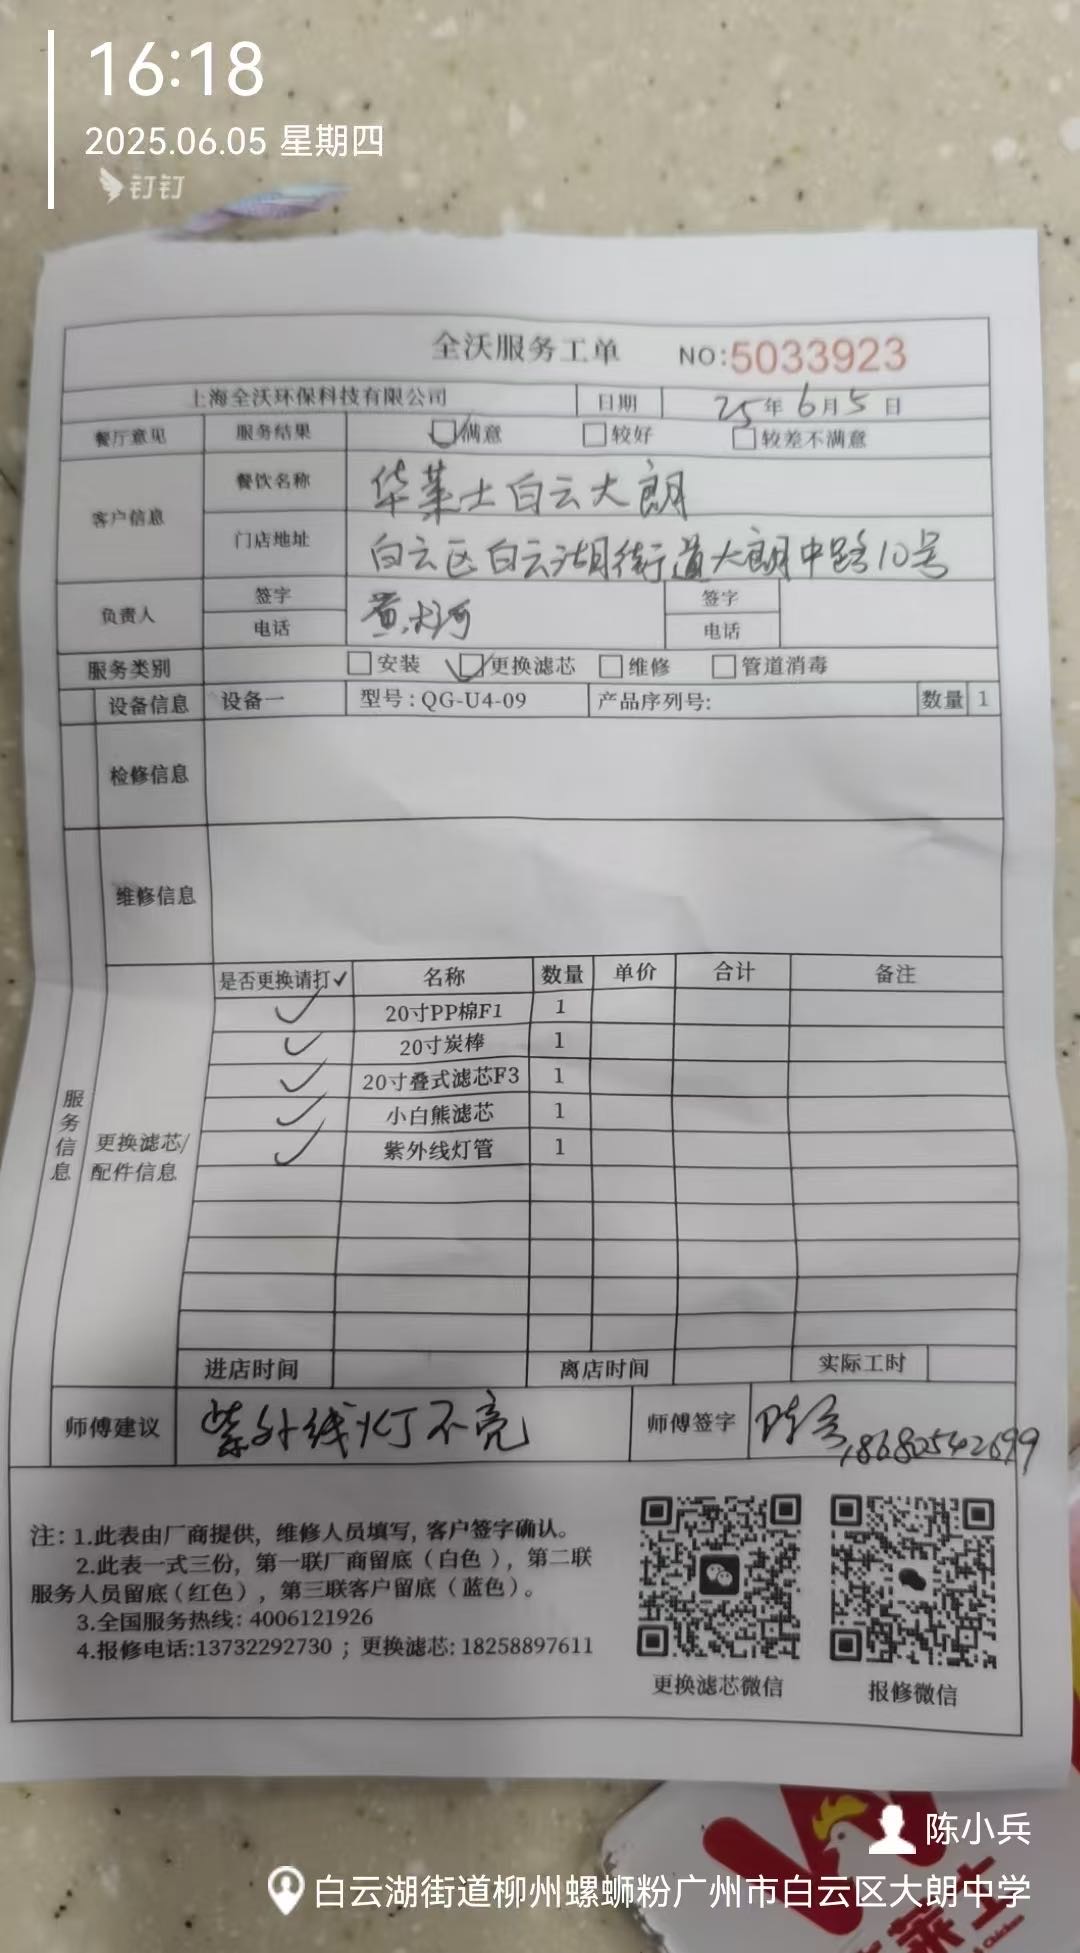 16:18
2025.06.05 星期四
钉钉
全沃服务工单 NO:5033923
上海全沃环保科技有限公司 日期 25年6月5日
餐厅意见 服务结果 满意 较好 较差不满意
客户信息 餐饮名称 华莱士白云大朗
门店地址 白云区白云湖街道大朗中路10号
负责人 签字 黄 签字
电话 电话
服务类别 安装 更换滤芯 维修 管道消毒
设备信息 设备一 型号:QG-U4-09 产品序列号: 数量 1
检修信息
维修信息
服务信息
更换滤芯/
配件信息
是否更换请打✓ 名称 数量 单价 合计 备注
✓ 20寸PP棉F1 1
✓ 20寸炭棒 1
✓ 20寸叠式滤芯F3 1
✓ 小白熊滤芯 1
✓ 紫外线灯管 1
进店时间 离店时间 实际工时
师傅建议 紫外线灯不亮 师傅签字 18680542699
注: 1.此表由厂商提供, 维修人员填写, 客户签字确认。
2.此表一式三份, 第一联厂商留底(白色), 第二联
服务人员留底(红色), 第三联客户留底(蓝色)。
3.全国服务热线: 4006121926
4.报修电话:13732292730 ; 更换滤芯: 18258897611
更换滤芯微信 报修微信
陈小兵
白云湖街道柳州螺蛳粉广州市白云区大朗中学
莱士
Chicken